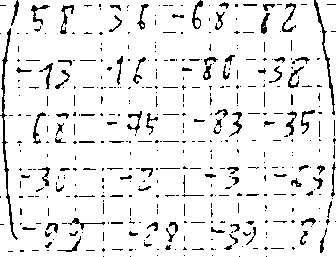 58 36 -68 82
-13 16 -86 -38
68 -75 -83 -35
-30 -2 -3 -63
-99 -28 -39 8